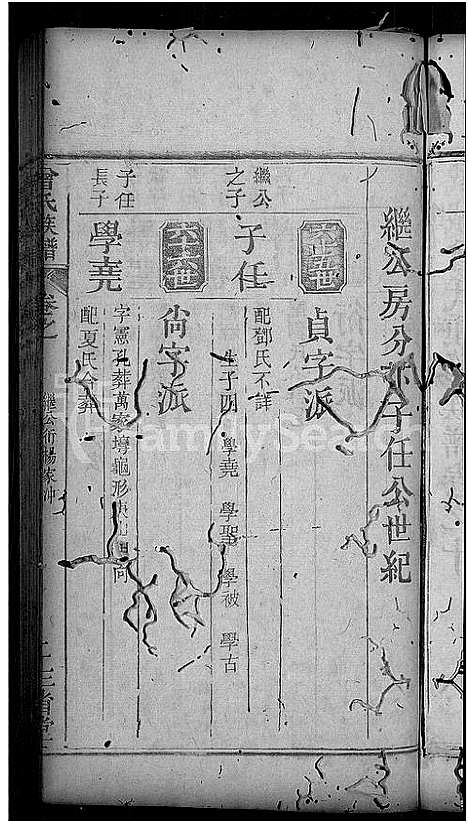 繼公房分 子任公世紀
六十五世 貞字派
繼公之子 子任
配鄧氏不詳
生子四 學堯 學聖 學被 學古
六十六世 尙字派
子任長子 學堯
字憲孔葬萬家塆龜形 向
配夏氏合葬
曾氏族譜 卷之 繼公術楊家沖 三省堂
FamilySearch